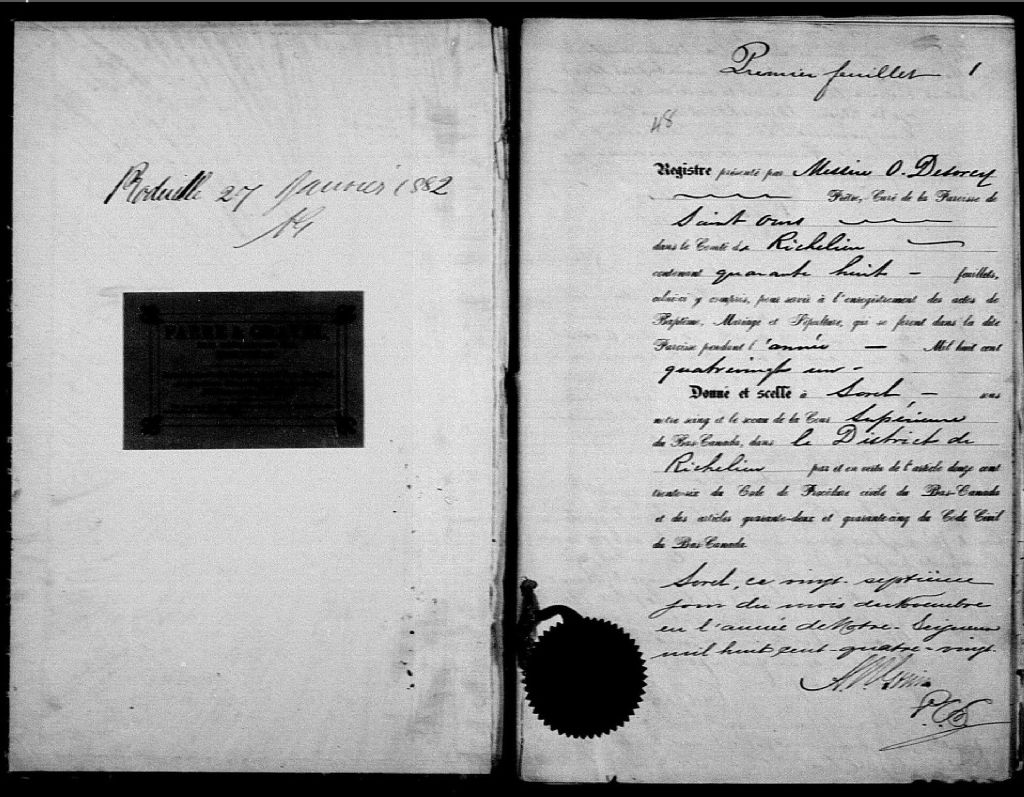 27 Janvier 1882
Premier feuillet 1
48
Registre présenté par Messire O. Desorcy
Prêtre, Curé de la Paroisse de
Saint Ours
dans le Comté de Richelieu
contenant quarante huit - feuillets,
celui-ci y compris, pour servir à l'enregistrement des actes de
Baptême, Mariage et Sépulture, qui se feront dans la dite
Paroisse pendant l'année — Mil huit cent
quatrevingt un -
Donné et scellé à Sorel, — sous
notre seing et le sceau de la Cour Supérieure
du Bas-Canada, dans le District de
Richelieu par et en vertu de l'article douze cent
trente-six du Code de Procédure civile du Bas-Canada
et des articles quarante-deux et quarante-cinq du Code Civil
du Bas-Canada.
Sorel, ce vingt-septième
jour du mois de Novembre
en l'année de Notre-Seigneur
mil huit cent-quatre-vingt.